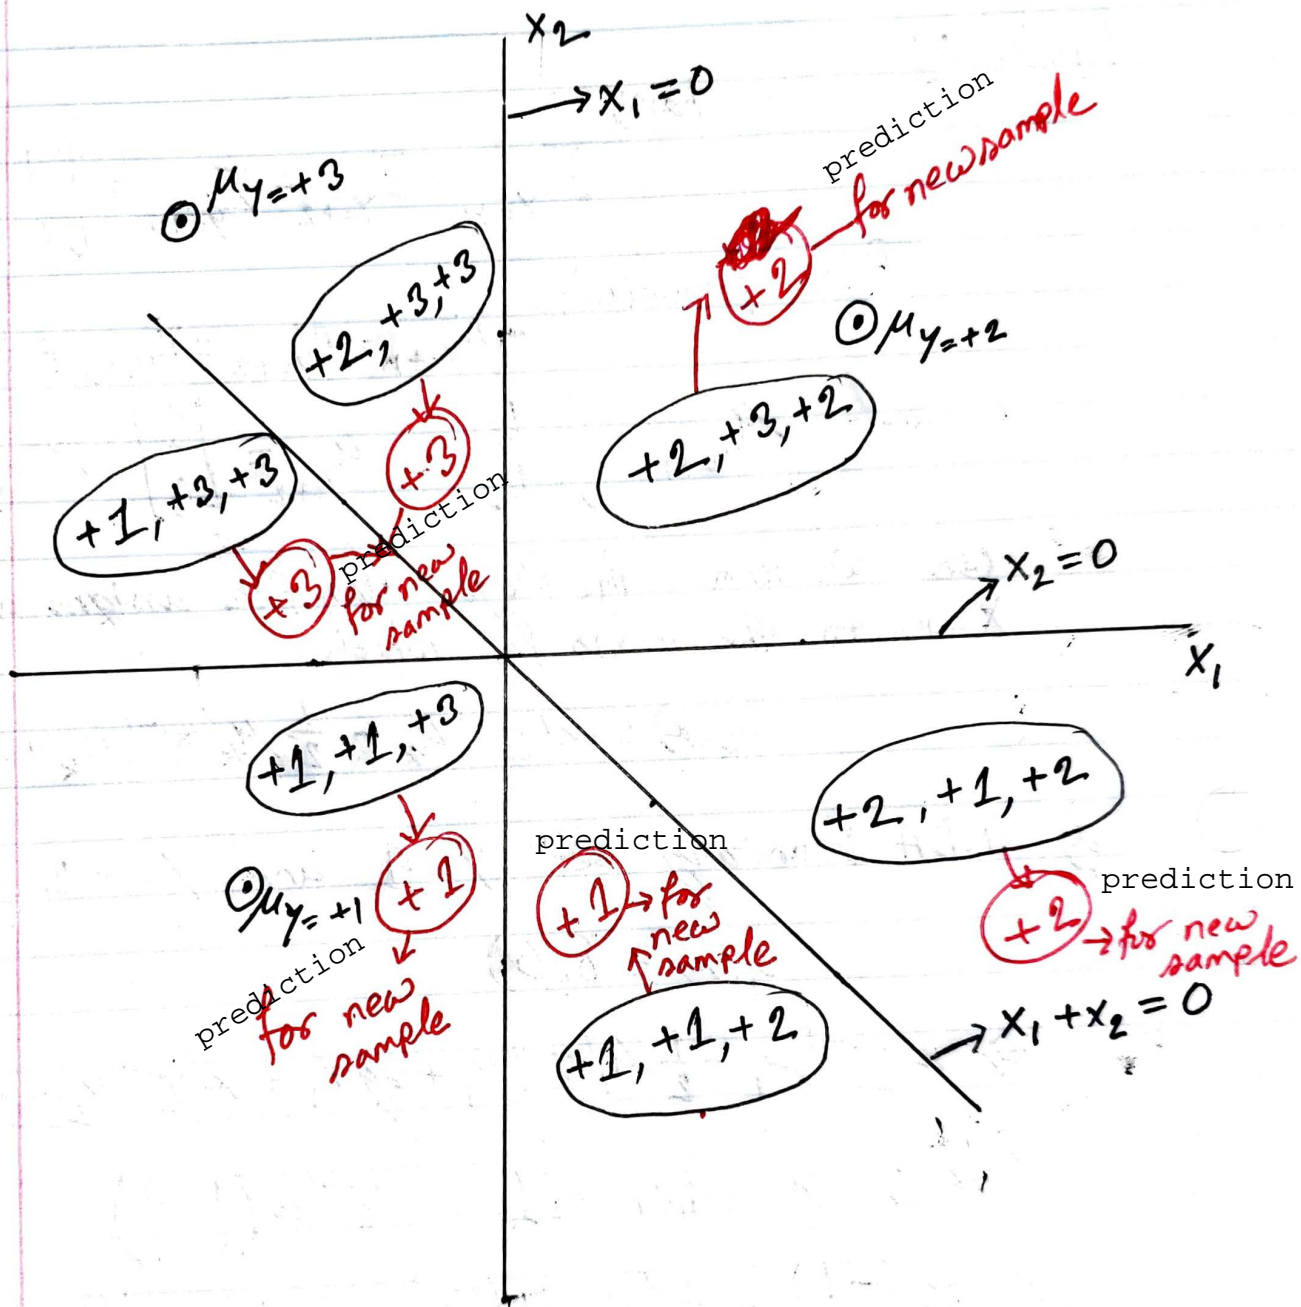 x₂
→ x₁ = 0
prediction
for new sample
μy=+3
+2
+2, +3, +3
μy=+2
+2, +3, +2
+3
+1, +3, +3
prediction
+3
for new
sample
x₂ = 0
x₁
+1, +1, +3
+2, +1, +2
prediction
+1
μy=+1
+1 → for
new
sample
prediction
+2 → for new
sample
prediction
for new
sample
+1, +1, +2
x₁ + x₂ = 0